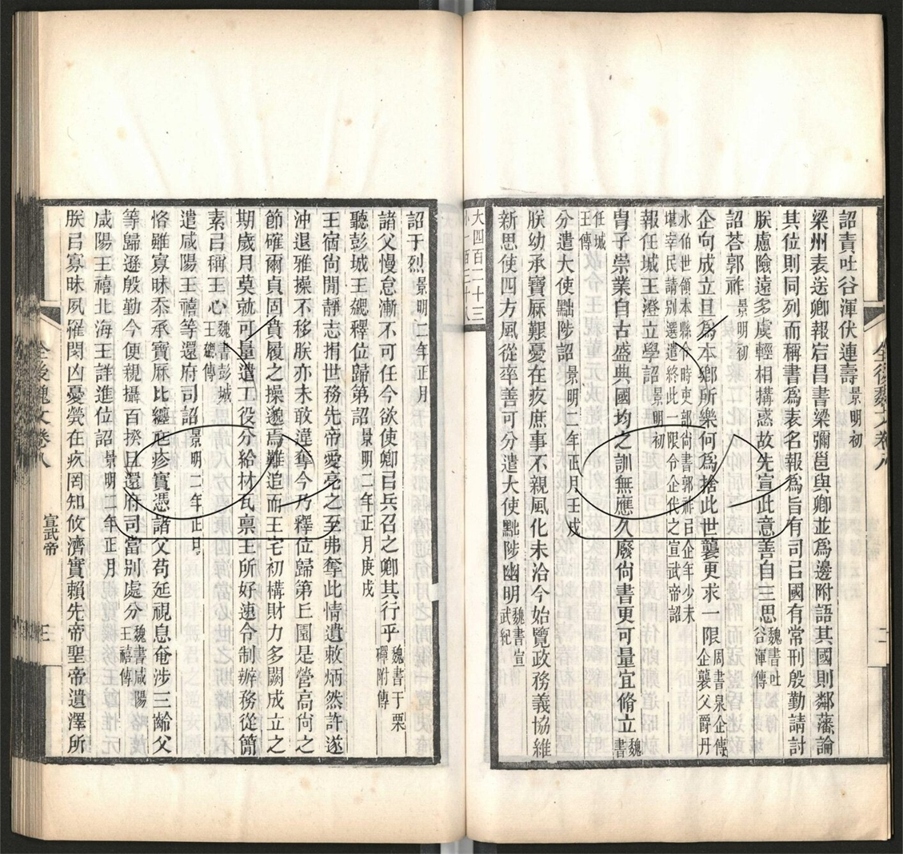 詔責吐谷渾伏連壽 景明初
梁州表送卿報宕昌書梁彌邕與卿並爲邊附語其國則鄰藩論
其位則同列而稱書爲表名報爲旨有司㠯國有常刑殷勤請討
朕慮險遠多虞輕相搆惑故先宣此意善自三思 魏書吐谷渾傳
詔荅郭祚 景明初
企向成立且爲本鄉所樂何爲捨此世襲更求一限 周書泉企傳企襲父爵丹
水伯世領本縣令時吏部尚書郭祚㠯企年少未
堪宰民請別選遣終此一限令企代之宣武帝詔
報任城王澄立學詔 景明初
冑子崇業自古盛典國均之訓無應久廢尙書更可量宜脩立 魏書
任城王傳
分遣大使黜陟詔 景明二年正月壬戌
朕幼承寶厤艱憂在疚庶事不親風化未洽今始覽政務義協維
新思使四方風從率善可分遣大使黜陟幽明 魏書宣武紀
大四百二十三
全後魏文卷八
詔于烈 景明二年正月
諸父慢怠漸不可任今欲使卿㠯兵召之卿其行乎 魏書于栗磾附傳
聽彭城王勰釋位歸第詔 景明二年正月庚戌
王宿尙閒靜志捐世務先帝愛亮之至弗奪此情遺敕炳然許遂
沖退雅操不移朕亦未敢違奪今乃釋位歸第丘園是營高尙之
節確爾貞固貴履之操邈焉難追而王宅初構財力多闕成立之
期歲月莫就可量遣工役分給材瓦稟王所好速令制辦務從簡
素㠯稱王心 魏書彭城王勰傳
遣咸陽王禧等還府司詔 景明二年正月
恪雖寡昧忝承寶厤比纏尫疹實憑諸父苟延視息奄涉三齡父
等歸遜殷勤今便親攝百揆且還府司當別處分 魏書咸陽王禧傳
咸陽王禧北海王詳進位詔 景明二年正月
朕㠯寡昧夙罹閔凶憂煢在疚罔知攸濟實賴先帝聖帝遺澤所
全後魏文卷八
宣武帝
三